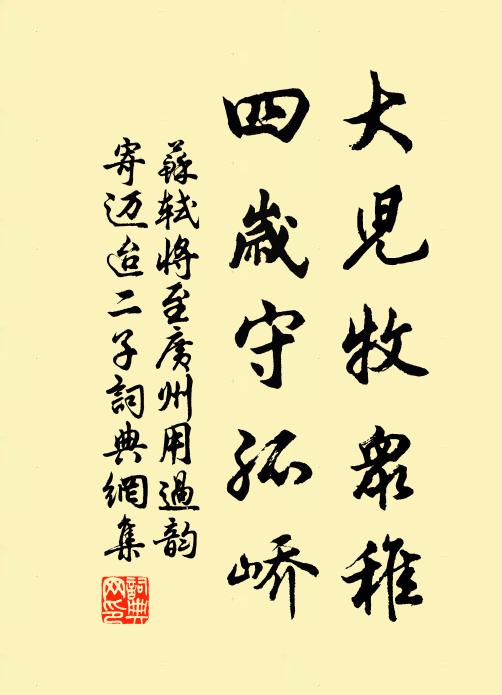 大児牧衆稚
四歲守孤嶠
蘇軾將至廣州用過韵
寄迈迨二子詞典網集
詞典网印